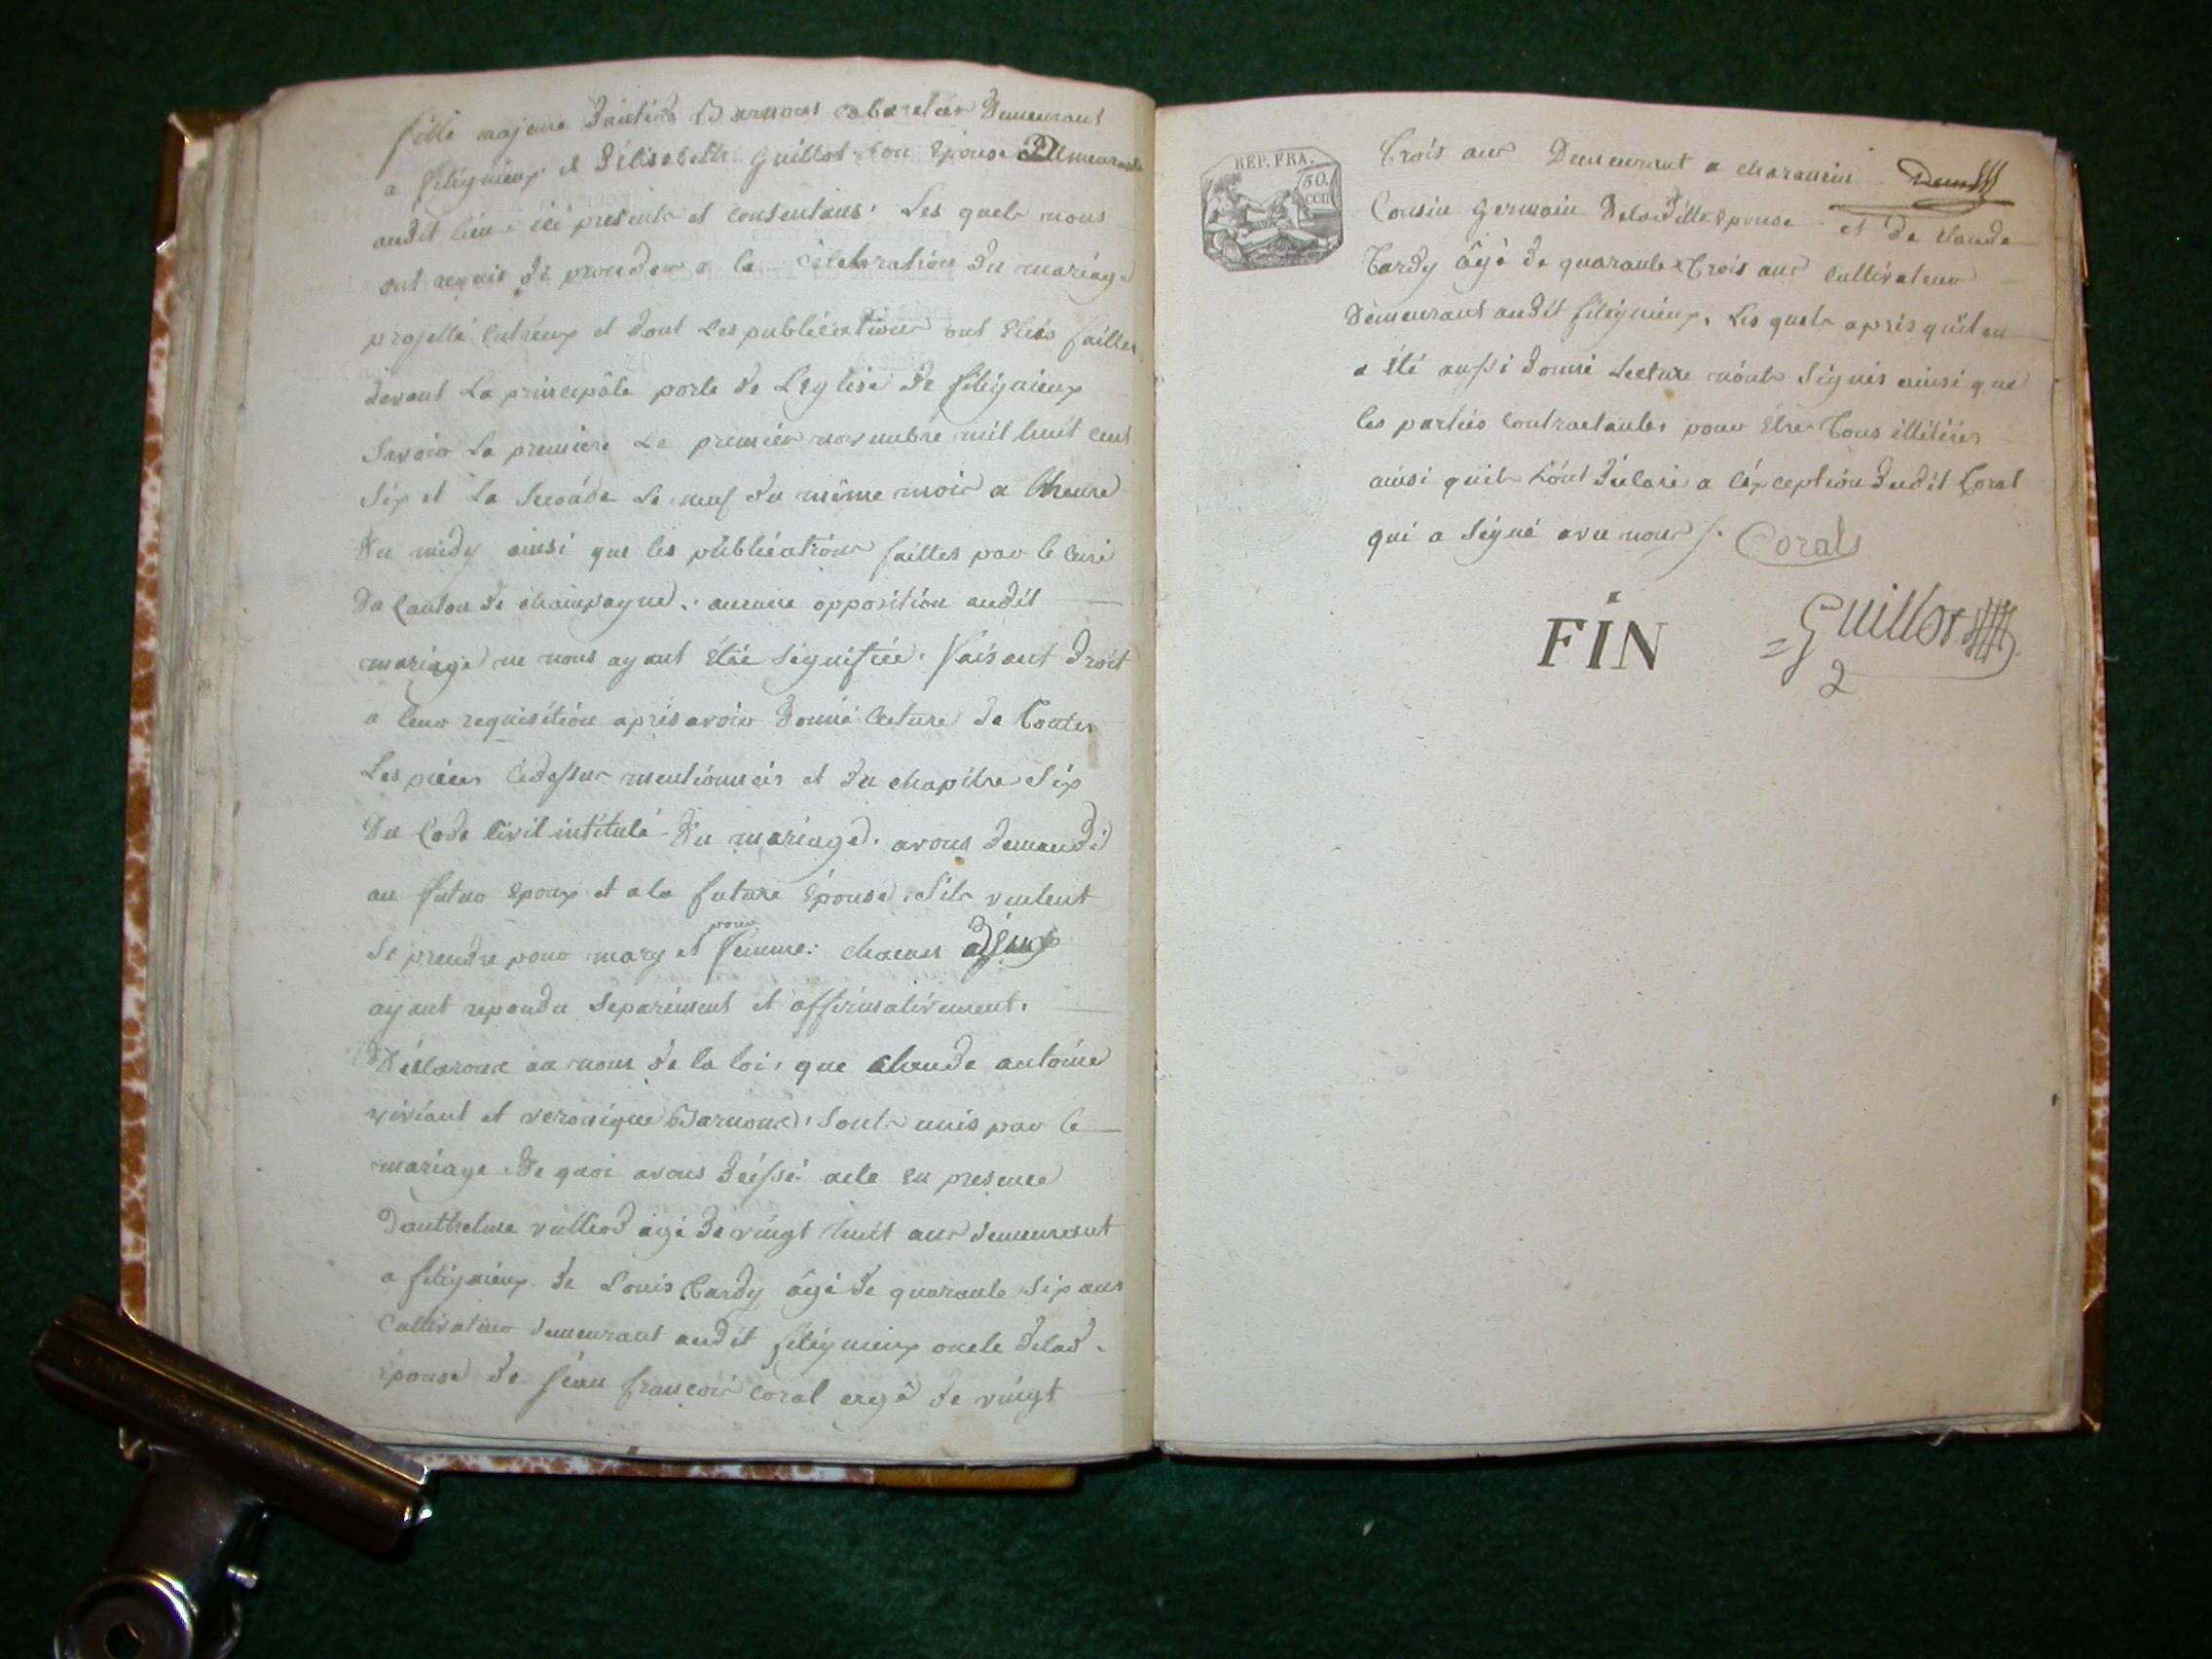 fille majeure Barnous cabaretier demeurant
a fitignieux et d'élisabeth guillot son épouse demeurante
audit lieu ici présents et consentans. Les quels nous
ont requis de proceder a la célébration du mariage
projetté entréux et dont les publications ont étées faittes
devant La principâle porte de L'église de fitignieux
Savoir La premiere Le premier novembre mil huit cent
Six et La Seconde Le neuf du même mois a lheure
Du midy ainsi que les publications faittes par le curé
Du Canton de champagne. aucune opposition audit
mariage ne nous ayant étée signifiée. faisant droit
a leur requisition après avoir donné lecture de toutes
Les pièces cidessus mentionnées et du chapitre Six
Du Code Civil intitulé Du mariage. avons demandé
au futur epoux et a la future épouse. S'ils veulent
se prendre pour mary et pour femme: chacun d'eux
ayant repondu separément et affirmativement.
Déclarons au nom de la loi, que claude antoine
viviant et veronique Barnous. Sont unis par le
mariage. De quoi avons dréssé acte en presence
Danthelme vulliod agé de vingt huit ans demeurant
a fitignieux de Louis tardy âgé de quarante Six ans
Cultivateur demeurant audit fitignieux oncle delad.
épouse de jean françois coral agé de vingt
REP. FRA.
50.
cen
trois ans Demeurant a charancin
Cousin germain Deladitte épouse et de claude
tardy âgé de quarante trois ans cultivateur
Demeurant audit fitignieux. Les quels après qu'il en
a été aussi donné Lecture n'ont Signés ainsi que
les parties contractantes pour être tous illitérés
ainsi quils l'ont déclaré a l'éxception dudit Coral
qui a Signé avec nous /. Coral
FIN
Guillot
2